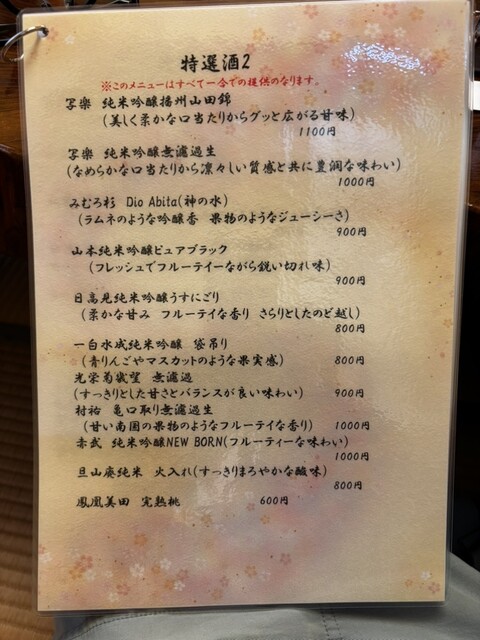 特選酒2
※このメニューはすべて一合での提供のなります。
写楽 純米吟醸播州山田錦
(美しく柔かな口当たりからグッと広がる甘味)
1100円
写楽 純米吟醸無濾過生
(なめらかな口当たりから凛々しい質感と共に豊潤な味わい)
1000円
みむろ杉 Dio Abita(神の水)
(ラムネのような吟醸香 果物のようなジューシーさ)
900円
山本純米吟醸ピュアブラック
(フレッシュでフルーティーながら鋭い切れ味)
900円
日高見純米吟醸うすにごり
(柔かな甘み フルーテイな香り さらりとしたのど越し)
800円
一白水成純米吟醸 袋吊り
(青りんごやマスカットのような果実感) 800円
光栄菊幾望 無濾過
(すっきりとした甘さとバランスが良い味わい) 900円
村祐 亀口取り無濾過生
(甘い南国の果物のようなフルーテイな香り) 1000円
赤武 純米吟醸NEW BORN(フルーティーな味わい)
1000円
旦山廃純米 火入れ(すっきりまろやかな酸味)
800円
鳳凰美田 完熟桃 600円